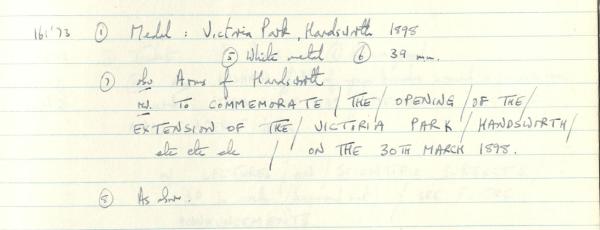 161'73 ① Medal : Victoria Park, Handsworth 1898
⑤ White metal ⑥ 39 mm.
⑦ obv Arms of Handsworth
rev. TO COMMEMORATE / THE / OPENING / OF THE /
EXTENSION OF THE / VICTORIA PARK / HANDSWORTH /
etc etc etc / ON THE 30TH MARCH 1898.
⑧ As above.